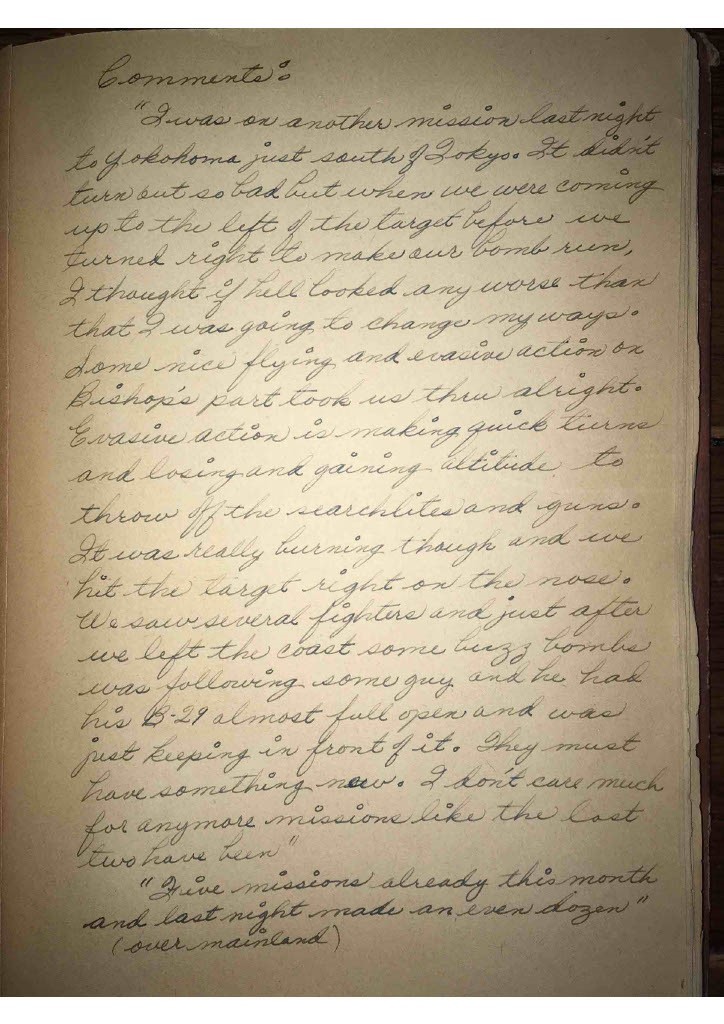 Comments:
"I was on another mission last night
to Yokohoma just south of Tokyo. It didn't
turn out so bad but when we were coming
up to the left of the target before we
turned right to make our bomb run,
I thought if hell looked any worse than
that I was going to change my ways.
Some nice flying and evasive action on
Bishop's part took us thru alright.
Evasive action is making quick turns
and losing and gaining altitude to
throw off the searchlites and guns.
It was really burning though and we
hit the target right on the nose.
We saw several fighters and just after
we left the coast some buzz bombs
was following some guy and he had
his B-29 almost full open and was
just keeping in front of it. They must
have something new. I don't care much
for anymore missions like the last
two have been"
"Five missions already this month
and last night made an even dozen"
(over mainland)